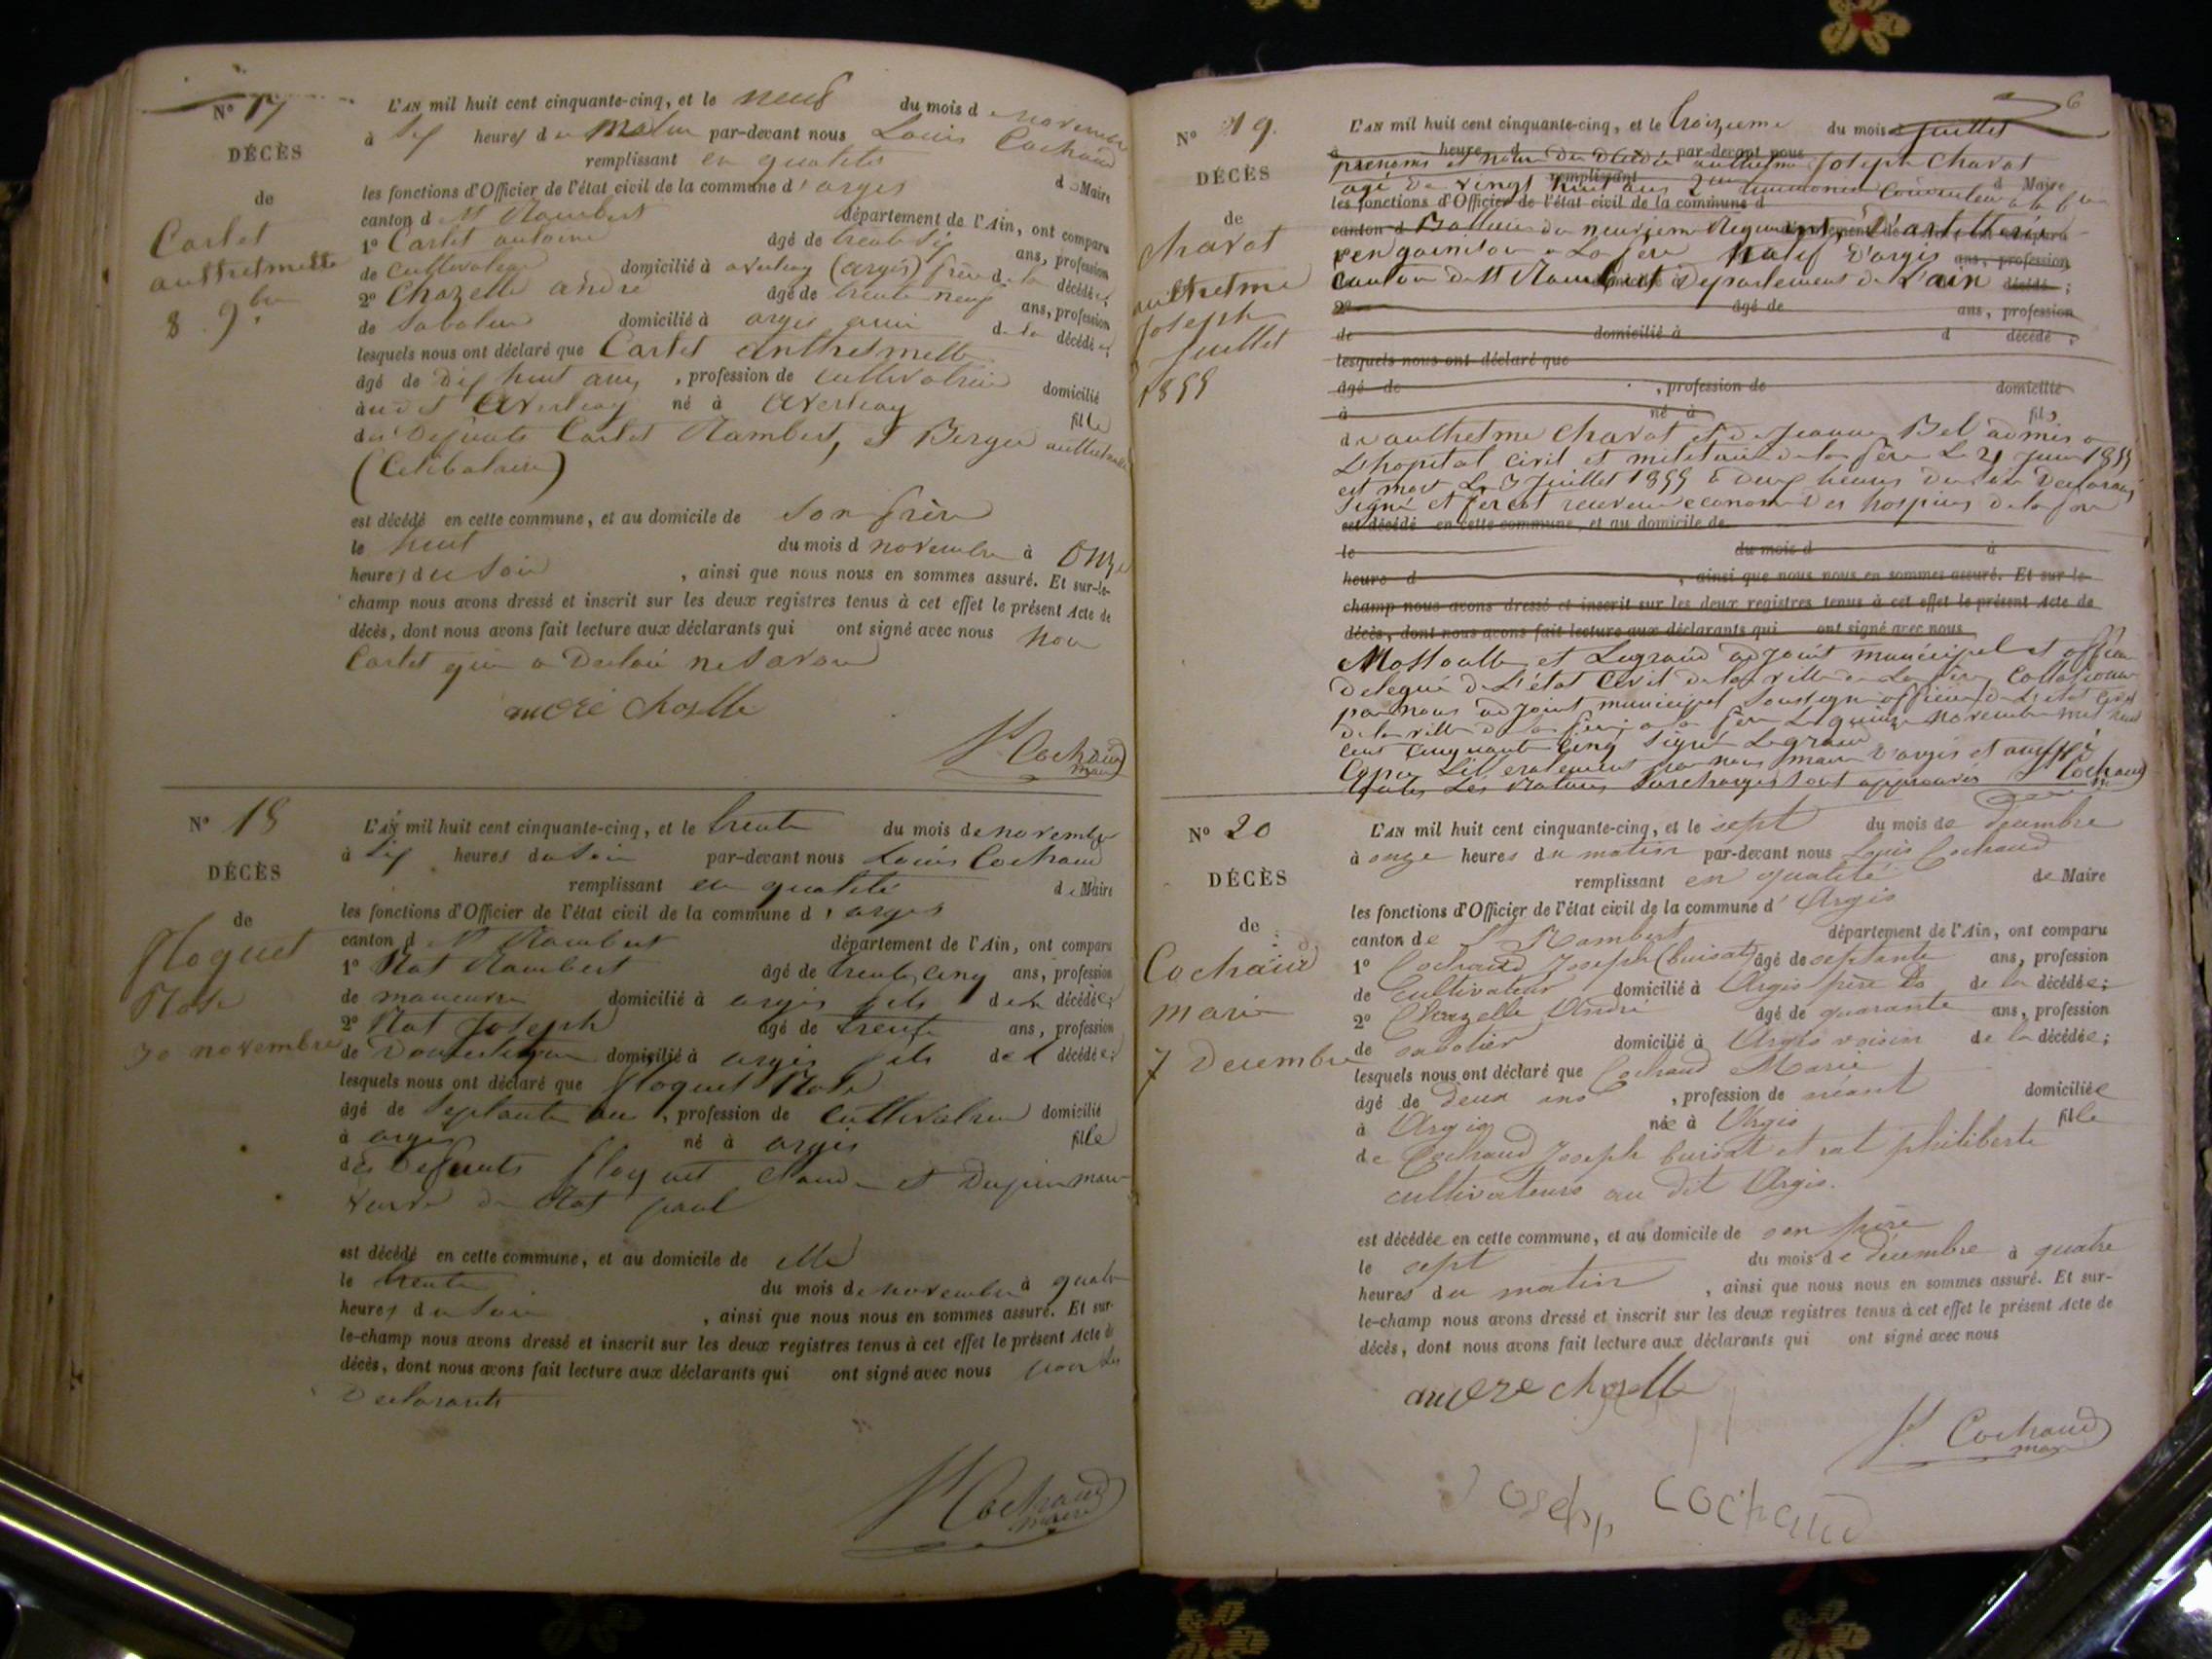 N° 17
DÉCÈS
de
Carlet
anthelmette
8 9bre
L'AN mil huit cent cinquante-cinq, et le neuf du mois de novembre
à six heures du matin par-devant nous Louis Cochaud
remplissant en qualité de Maire
les fonctions d'Officier de l'état civil de la commune d'argis
canton de St Rambert département de l'Ain, ont comparu
1° Carlet antoine âgé de trente six ans, profession
de cultivateur domicilié à averliay (argis) frère de la décédée;
2° Chazelle andré âgé de trente neuf ans, profession
de Sabotier domicilié à argis ami de la décédée;
lesquels nous ont déclaré que Carlet anthelmette
âgé de dix huit ans, profession de cultivatrice domicilié
au dit né à
fille
des Defunts Carlet Rambert, et Berger
(Celibataire)
est décédé en cette commune, et au domicile de Son frère
le huit du mois de novembre à Onze
heures du Soir, ainsi que nous nous en sommes assuré. Et sur-le-
champ nous avons dressé et inscrit sur les deux registres tenus à cet effet le présent Acte de
décès, dont nous avons fait lecture aux déclarants qui ont signé avec nous non
Carlet qui a Declaré ne Savoir
andré chazelle
Ls Cochaud
maire
N° 18
DÉCÈS
de
floquet
Rose
30 novembre
L'AN mil huit cent cinquante-cinq, et le trente du mois de novembre
à six heures du Soir par-devant nous Louis Cochaud
remplissant en qualité de Maire
les fonctions d'Officier de l'état civil de la commune d'argis
canton de St Rambert département de l'Ain, ont comparu
1° Rat Rambert âgé de trente cinq ans, profession
de manœuvre domicilié à argis fils de la décédée;
2° Rat Joseph âgé de trente ans, profession
de Domestique domicilié à argis fils de la décédée;
lesquels nous ont déclaré que floquet Rose
âgé de Septante ans, profession de cultivatrice domicilié
à argis né à argis fille
des Defunts floquet Claude et
veuve de Rat paul
est décédé en cette commune, et au domicile de elle
le trente du mois de novembre à quatre
heures du Soir, ainsi que nous nous en sommes assuré. Et sur-
le-champ nous avons dressé et inscrit sur les deux registres tenus à cet effet le présent Acte de
décès, dont nous avons fait lecture aux déclarants qui ont signé avec nous non les
Declarants
Ls Cochaud
maire
6
N° 19.
DÉCÈS
de
Charat
anthelme
Joseph
3 Juillet
1855
L'AN mil huit cent cinquante-cinq, et le troizieme du mois de Juillet
à heure d par-devant nous
prenoms et nom du décédé anthelme Joseph Charat
remplissant d Maire
agé de vingt huit ans 2me Cannonier Conducteur a la 6me
les fonctions d'Officier de l'état civil de la commune d
canton d Batterie du neuvieme Regiment d'artillerie
en garnison a La fere natif d'argis ans, profession
Canton de St Rambert Departement de L'ain décédé;
2° âgé de ans, profession
de domicilié à d décédé;
lesquels nous ont déclaré que
âgé de , profession de domicilié
à né à fils
de anthelme Charat et de Jeanne Bel admis a
L'hopital civil et militaire de la fère Le 21 Juin 1855
est mort Le 3 Juillet 1855 à deux heures du Soir
Signé et receveur econome Des hospices de la fère
est décédé en cette commune, et au domicile de
le du mois d à
heure d , ainsi que nous nous en sommes assuré. Et sur-le-
champ nous avons dressé et inscrit sur les deux registres tenus à cet effet le présent Acte de
décès, dont nous avons fait lecture aux déclarants qui ont signé avec nous
et Legrand adjoint municipal et officier
Delegué de L'état Civil de la ville de La fère, Collationné
par nous adjoint municipal Soussigné officier de L'etat Civil
de la ville de La fère, a la fère Le quinze novembre mil huit
cent cinquante cinq Signé Legrand
Copier Litteralement par nous maire d'argis et
Toutes Les Ratures Surcharges Sont approuvés Ls Cochaud
N° 20
DÉCÈS
de
Cochaud
marie
7 Decembre
L'AN mil huit cent cinquante-cinq, et le sept du mois de Decembre
à onze heures du matin par-devant nous Louis Cochaud
remplissant en qualité de Maire
les fonctions d'Officier de l'état civil de la commune d'Argis
canton de St Rambert département de l'Ain, ont comparu
1° Cochaud Joseph (buisat) âgé de septante ans, profession
de Cultivateur domicilié à Argis père de la décédée;
2° Chazelle André âgé de quarante ans, profession
de sabotier domicilié à Argis voisin de la décédée;
lesquels nous ont déclaré que Cochaud Marie
âgé de deux ans, profession de néant domiciliée
à Argis née à Argis fille
de Cochaud Joseph buisat et rat philiberte
cultivateurs au dit Argis.
est décédée en cette commune, et au domicile de son père
le sept du mois de décembre à quatre
heures du matin, ainsi que nous nous en sommes assuré. Et sur-
le-champ nous avons dressé et inscrit sur les deux registres tenus à cet effet le présent Acte de
décès, dont nous avons fait lecture aux déclarants qui ont signé avec nous
andre chazelle
Ls Cochaud
maire
Joseph cochaud